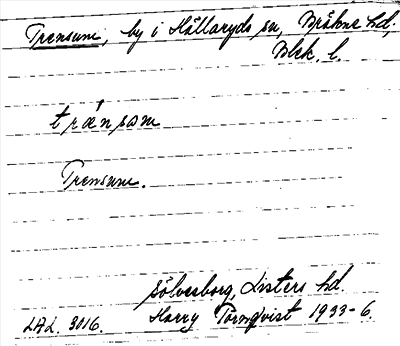 Trensum, by i Hällaryds sn, Bräkne hd,
Blek. l.
trǽnsam
Trensum.
Sölvesborg, Listers hd.
LAL. 3016. Harry Törnqvist 1933-6.